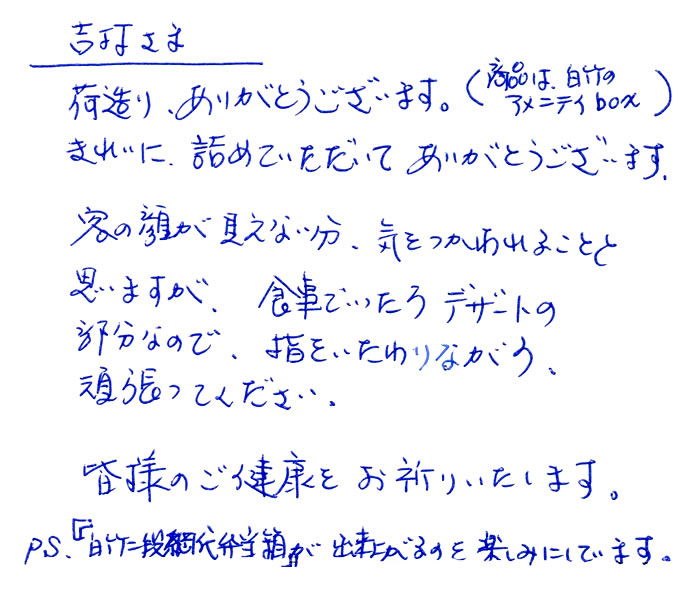 吉村さま
荷造り、ありがとうございます。(商品は、白竹の
アメニティbox)
きれいに、詰めていただいてありがとうございます。
客の顔が見えない分、気をつかわれることと
思いますが、食事でいったらデザートの
部分なので、指をいたわりながら、
頑張ってください。
皆様のご健康をお祈りいたします。
PS、『白竹二段網代弁当箱』が出来上がるのを楽しみにしています。